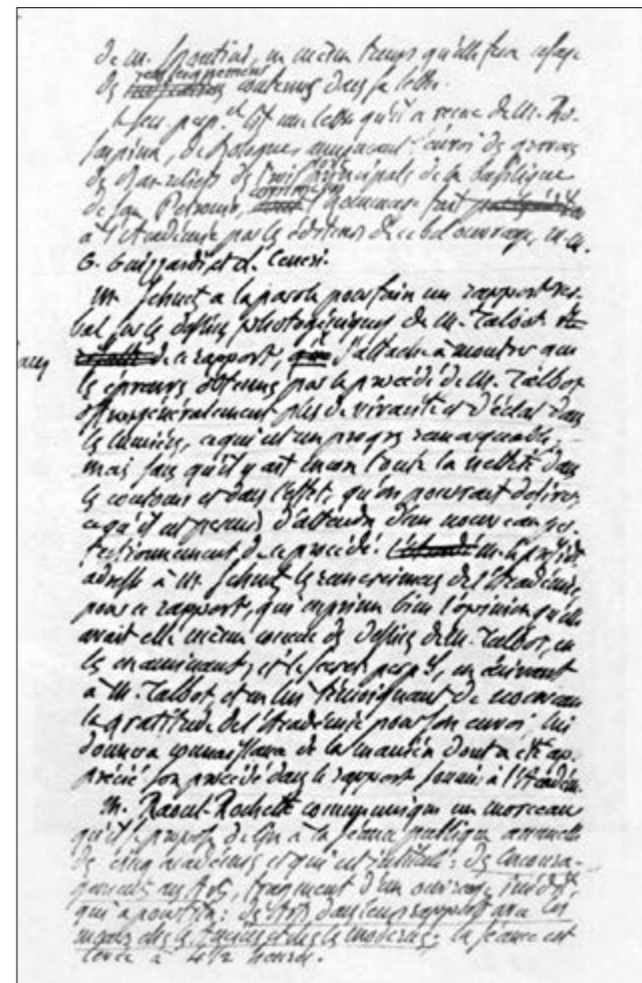 de M. Spontini, en même temps qu'elle fera usage
des renseignements contenus dans sa lettre.
Le secr. perp.el lit une lettre qu'il a reçue de M. Ro-
saspina, de Bologne, annonçant l'envoi de gravures
des bas-reliefs des trois portes principales de la Basilique
de San Petronio, hommage fait
à l'Académie par les éditeurs de ce bel ouvrage, M.M.
G. Guizzardi et Cenesi.
M. Schnetz a la parole pour faire un rapport ver-
bal sur les dessins photogéniques de M. Talbot.
de ce rapport, s'attache à montrer que
les épreuves obtenues par le procédé de M. Talbot
offrent généralement plus de vivacité et d'éclat dans
les lumières, ce qui est un progrès remarquable,
mais sans qu'il y ait encore toute la netteté dans
les contours et dans l'effet, qu'on pourrait désirer,
ce qu'il est permis d'attendre d'un nouveau per-
fectionnement de ce procédé. M. le présidt
adresse à M. Schnetz les remerciemens de l'Académie,
pour ce rapport, qui exprime bien l'opinion qu'elle
avait elle même conçue des dessins de M. Talbot, en
les examinant; et le secret. perp.el, en écrivant
à M. Talbot et en lui témoignant de nouveau
la gratitude de l'Académie pour son envoi lui
donnera connaissance de la manière dont a été ap-
précié son procédé dans le rapport soumis à l'Académ.
M. Raoul-Rochette communique un morceau
qu'il se propose de lire à la séance publique annuelle
des cinq académies et qui est intitulé: des Encoura-
gemens aux Arts, fragment d'un ouvrage inédit,
qui a pour titre: des Arts dans leurs rapports avec les
mœurs chez les anciens et chez les modernes; la séance est
levée à 4 1/2 heures.